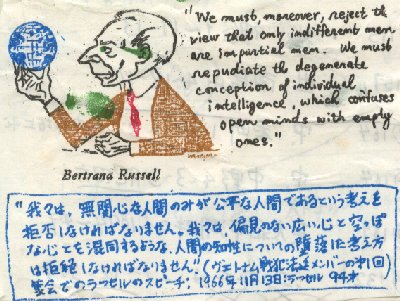 "We must, moreover, reject the
view that only indifferent men
are impartial men. We must
repudiate the degenerate
conception of individual
intelligence, which confuses
open minds with empty
ones."
Bertrand Russell
"我々は、無関心な人間のみが公平な人間であるという考えを
拒否しなければなりません。我々は、偏見のない広い心と空っぽ
な心とを混同するような、人間の知性についての堕落した考え方
は拒絶しなければなりません!(ヴェトナム戦犯法廷メンバーの第1回
集会でのラッセルのスピーチ:1966年11月13日:ラッセル 94才